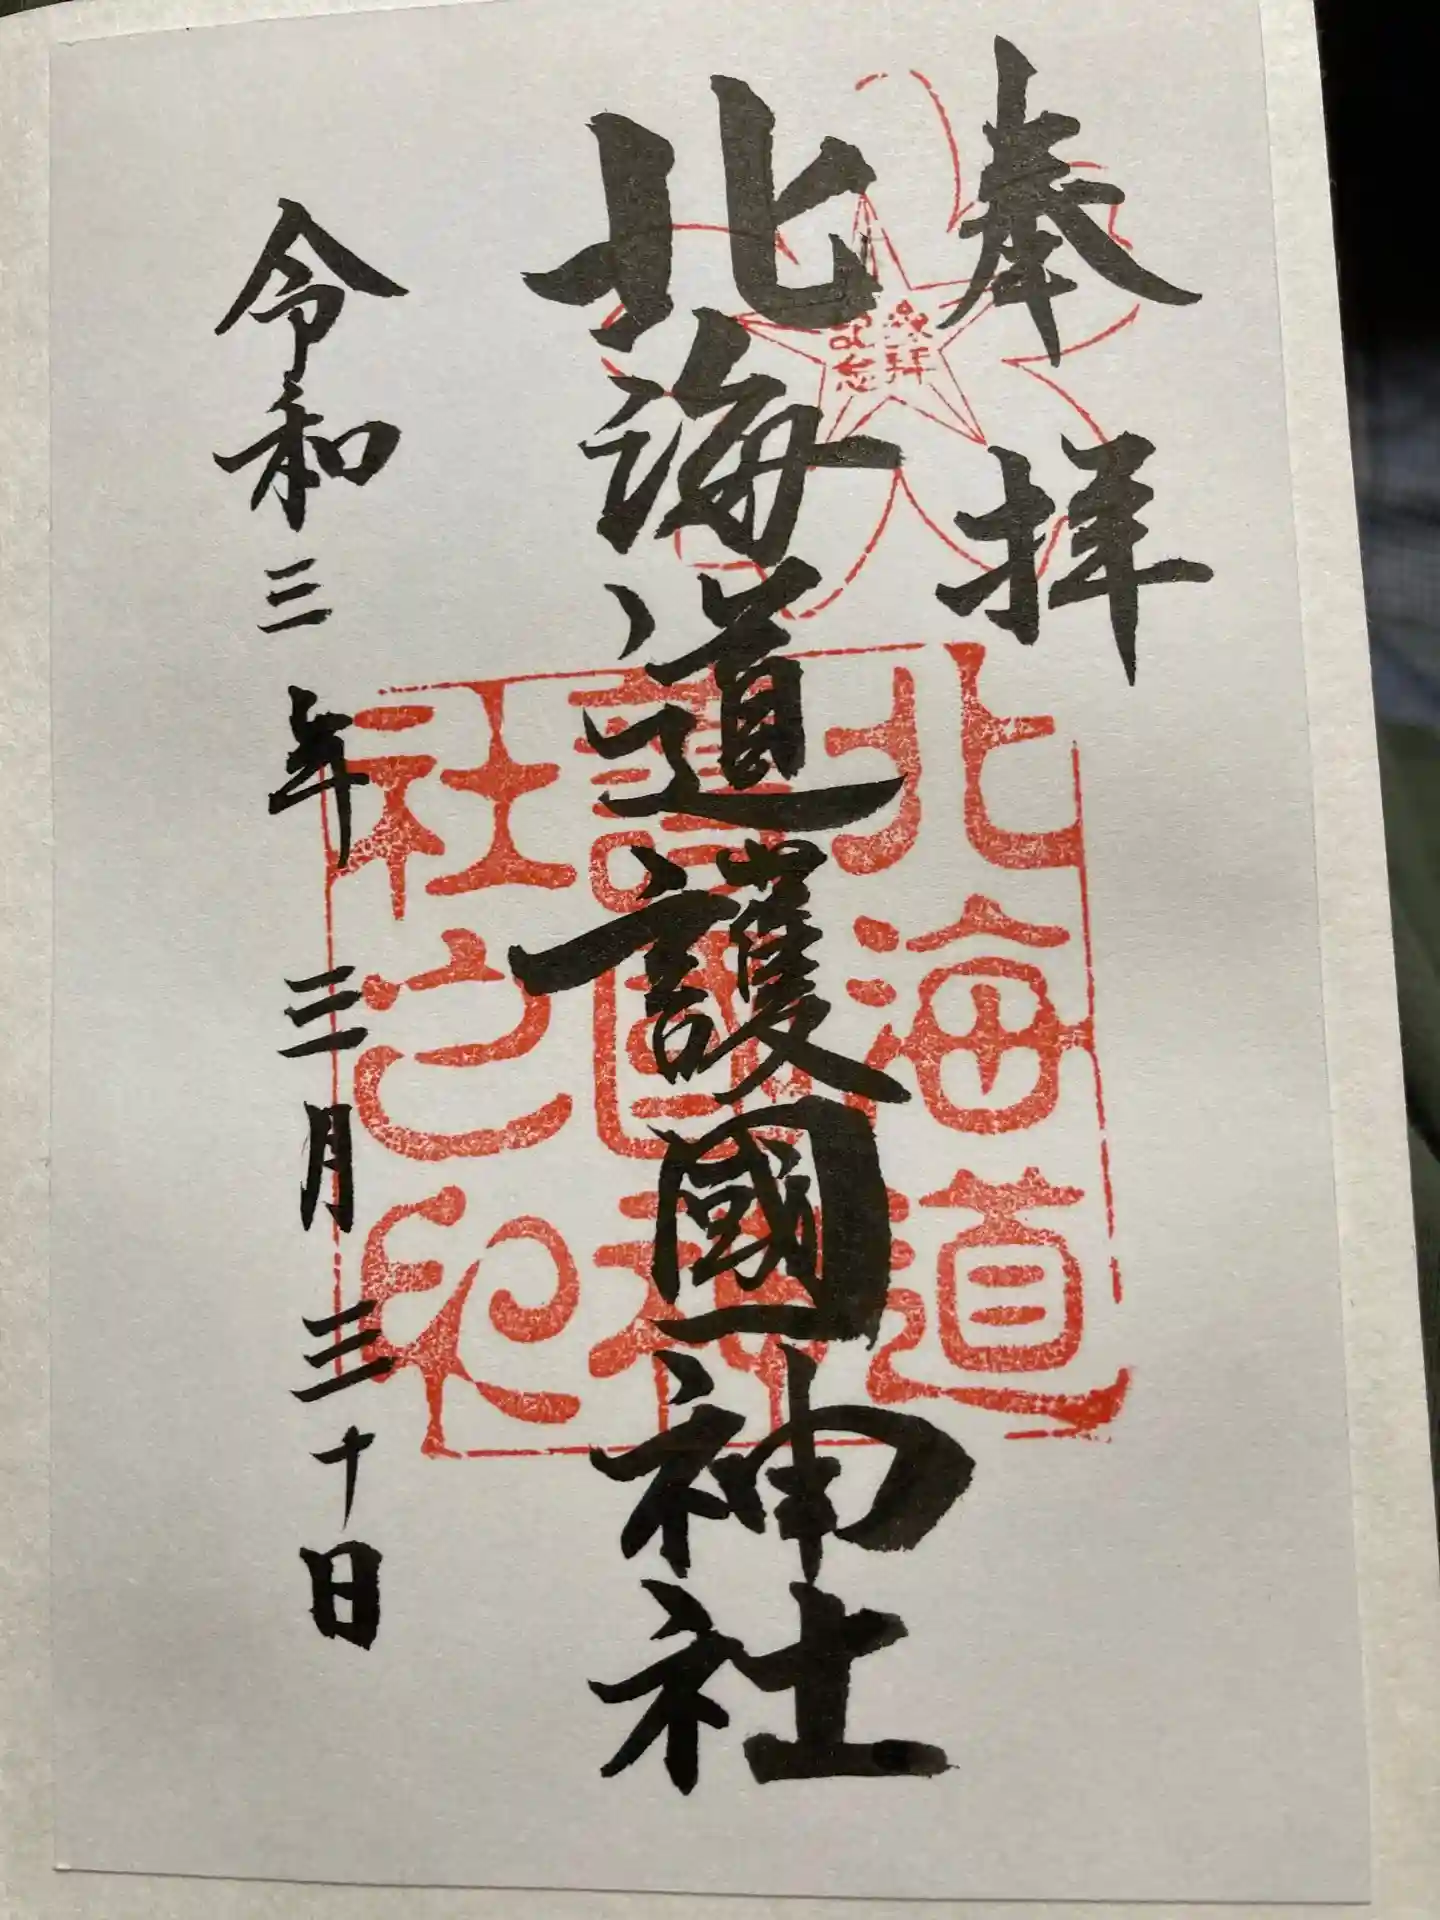 奉拝
参拝
記念
北海道護國神社
北海道
護國神
社之印
令和三年三月三十日